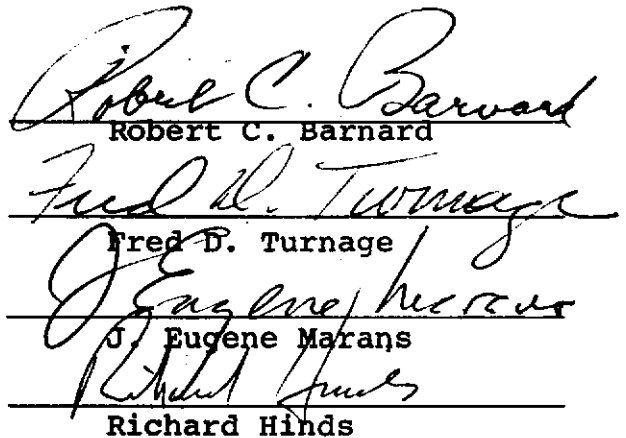 Robert C. Barnard
Robert C. Barnard
Fred D. Turnage
Fred D. Turnage
J. Eugene Marans
J. Eugene Marans
Richard Hinds
Richard Hinds